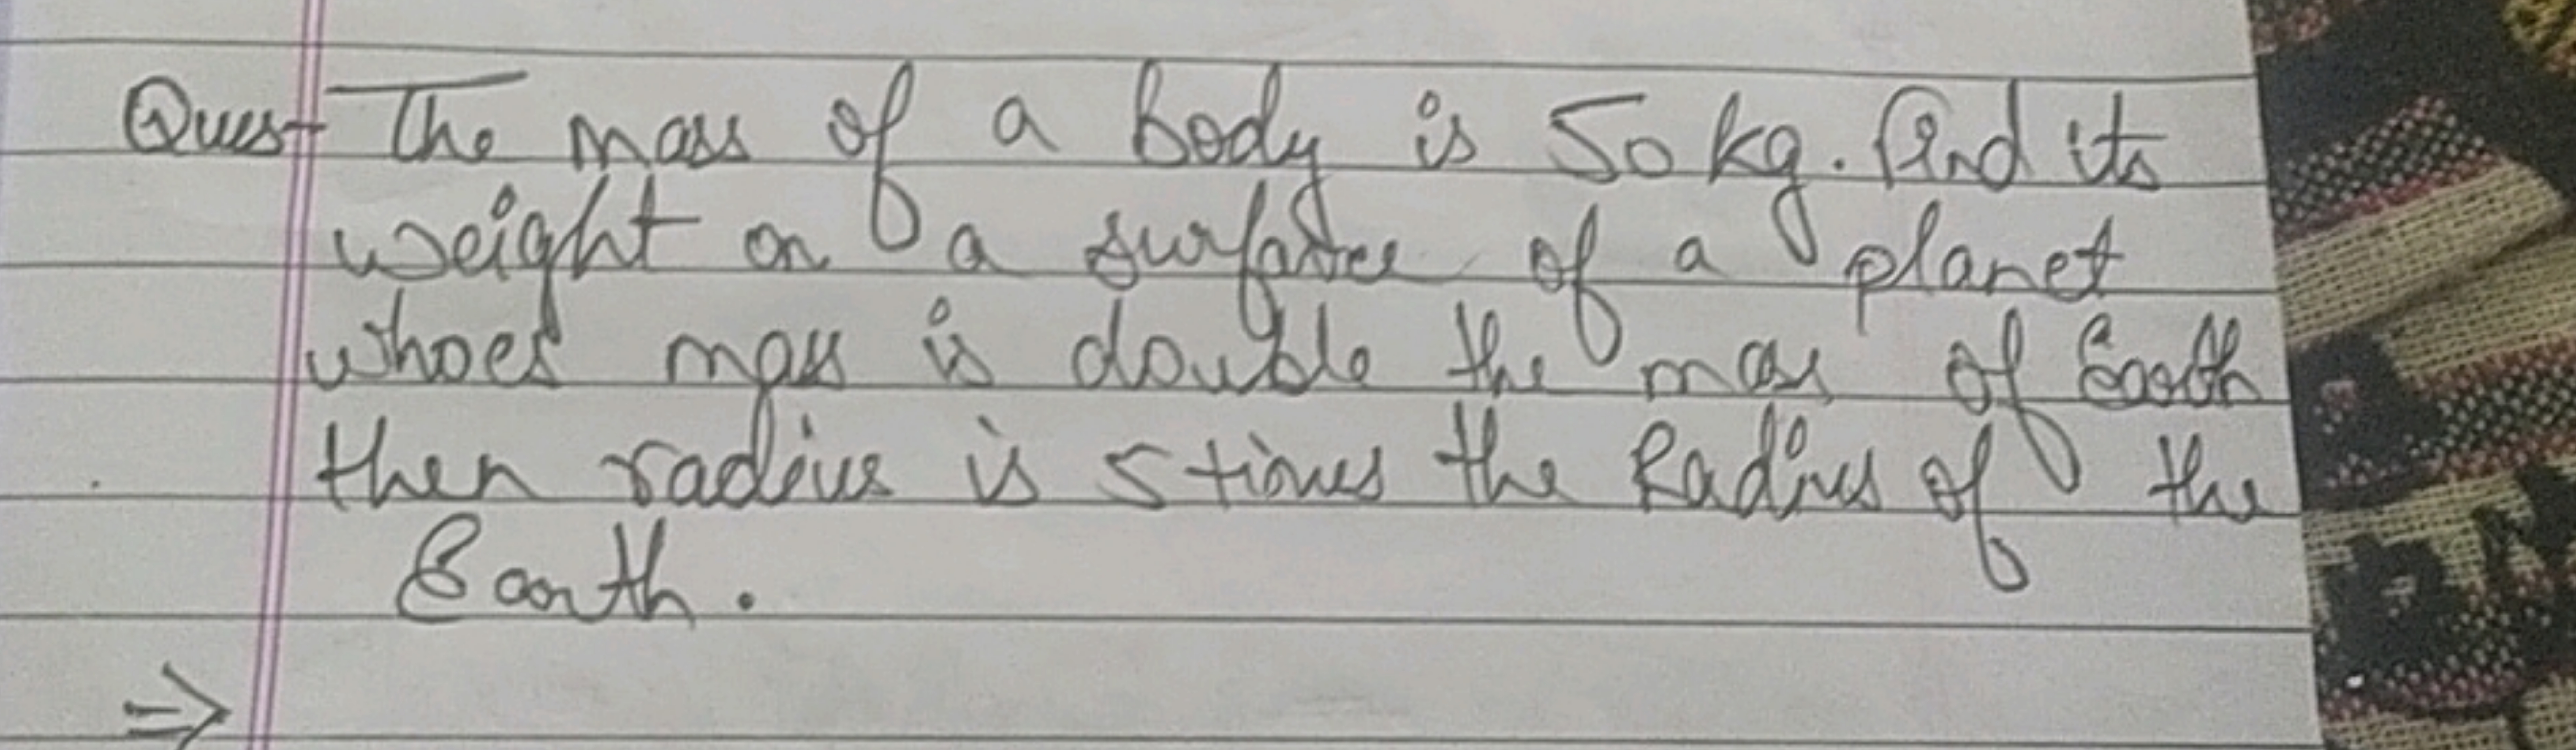 Ques- The mass of a body is 50 kg. find its
weight on a surface of a planet
whoes mass is double the mass of Earth
then radius is 5 times the Radius of the
Earth.
⇒